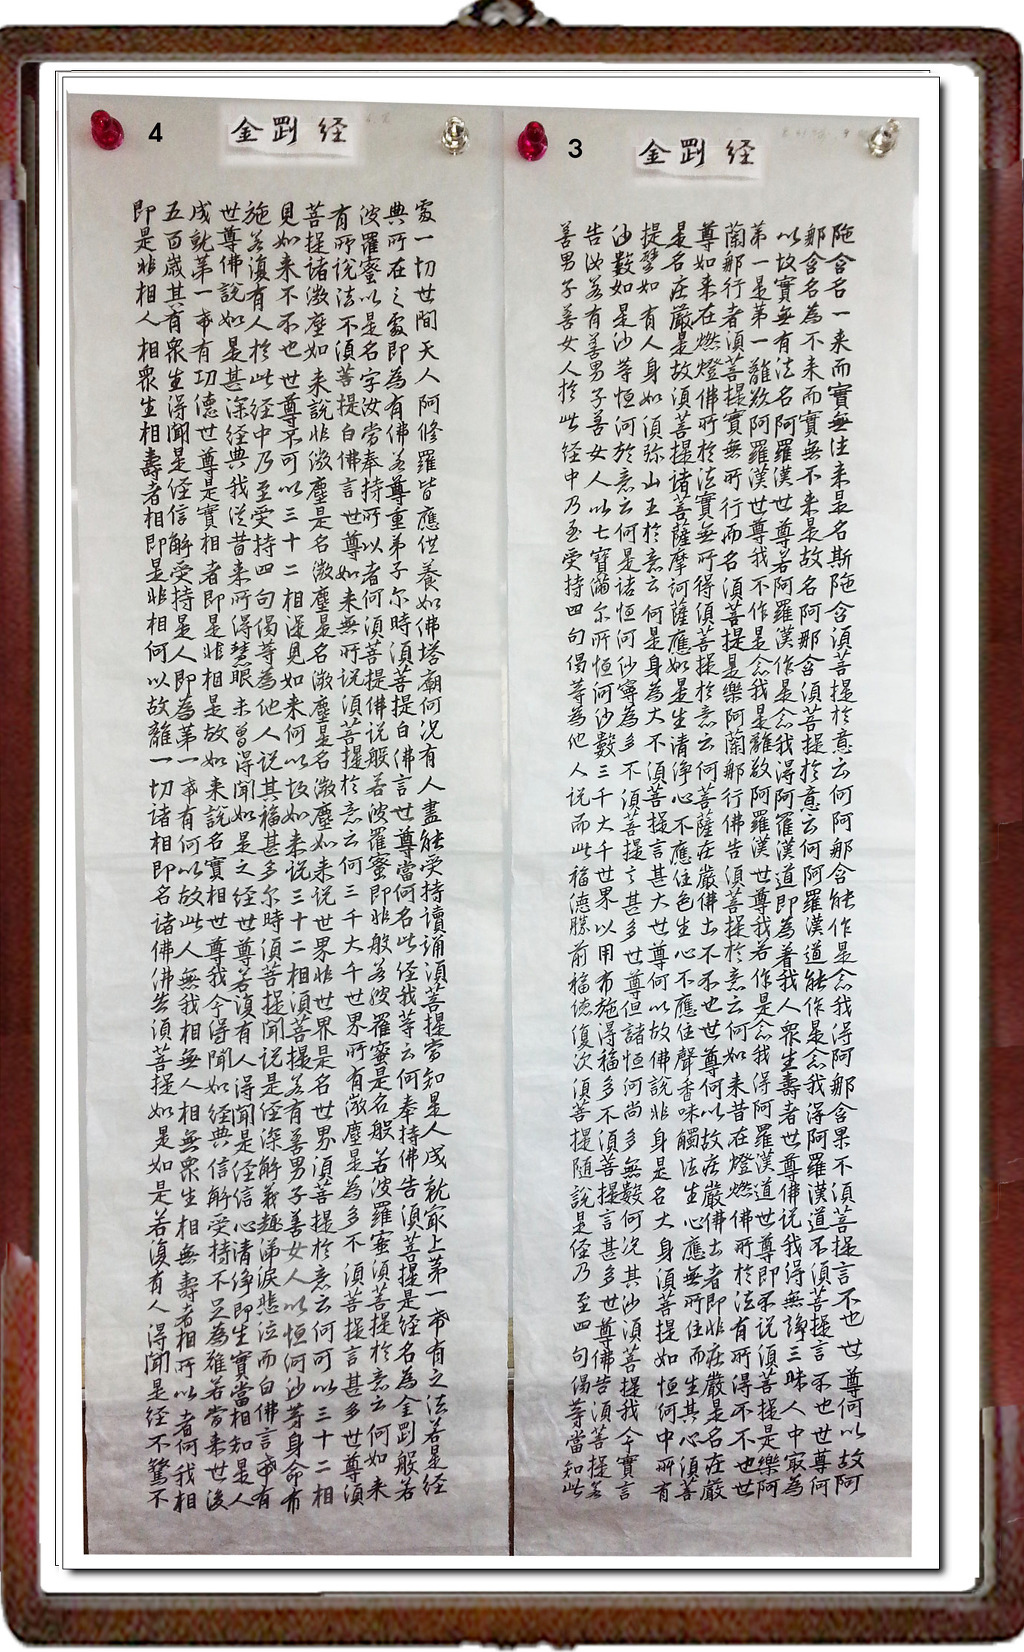 3
金剛经
陁含名一来而實無往来是名斯陁含須菩提於意云何阿那含能作是念我得阿那含果不須菩提言不也世尊何以故阿
那含名為不来而實無不来是故名阿那含須菩提於意云何阿羅漢道能作是念我得阿羅漢道不須菩提言不也世尊何
以故實無有法名阿羅漢世尊若阿羅漢作是念我得阿羅漢道即為着我人衆生壽者世尊佛说我得無諍三昧人中㝡為
第一是第一離欲阿羅漢世尊我不作是念我是離欲阿羅漢世尊我若作是念我得阿羅漢道世尊即不说須菩提是樂阿
蘭那行者須菩提實無所行而名須菩提是樂阿蘭那行佛告須菩提於意云何如来昔在燈燃佛所於法有所得不不也世
尊如来在燃燈佛所於法實無所得須菩提於意云何菩薩庄嚴佛土不不也世尊何以故庄嚴佛土者即非庄嚴是名庄嚴
是名庄嚴是故須菩提諸菩薩摩訶薩應如是生清淨心不應住色生心不應住聲香味觸法生心應無所住而生其心須菩
提譬如有人身如須弥山王於意云何是身為大不須菩提言甚大世尊何以故佛說非身是名大身須菩提如恒河中所有
沙數如是沙等恒河於意云何是诸恒河沙寧為多不須菩提言甚多世尊但諸恒河尚多無數何况其沙須菩提我今實言
告汝若有善男子善女人以七寶滿尔所恒河沙數三千大千世界以用布施得福多不須菩提言甚多世尊佛告須菩提若
善男子善女人於此经中乃至受持四句偈等為他人说而此福德勝前福德復次須菩提随說是经乃至四句偈等當知此
4
金剛经
處一切世間天人阿修羅皆應供養如佛塔廟何况有人盡能受持讀誦須菩提當知是人成就㝡上第一希有之法若是经
典所在之處即為有佛若尊重弟子尔時須菩提白佛言世尊當何名此经我等云何奉持佛告須菩提是经名為金剛般若
波羅蜜以是名字汝當奉持所以者何須菩提佛说般若波羅蜜即非般若波羅蜜是名般若波羅蜜須菩提於意云何如来
有所说法不須菩提白佛言世尊如来無所说須菩提於意云何三千大千世界所有微塵是為多不須菩提言甚多世尊須
菩提諸微塵如来說非微塵是名微塵是名微塵是名微塵如来说世界非世界是名世界須菩提於意云何可以三十二相
見如来不不也世尊不可以三十二相淂見如来何以故如来说三十二相須菩提若有善男子善女人以恒河沙等身命布
施若復有人於此经中乃至受持四句偈等為他人说其福甚多尔時須菩提聞说是经深解義趣涕淚悲泣而白佛言希有
世尊佛說如是甚深经典我從昔来所得慧眼未曾得聞如是之经世尊若復有人得聞是经信心清淨即生實當相知是人
成就第一希有功德世尊是實相者即是非相是故如来説名實相世尊我今得聞如经典信解受持不足為難若當来世後
五百歲其有衆生得聞是经信解受持是人即為第一希有何以故此人無我相無人相無衆生相無壽者相所以者何我相
即是非相人相衆生相壽者相即是非相何以故離一切诸相即名诸佛佛告須菩提如是如是若復有人得聞是经不驚不